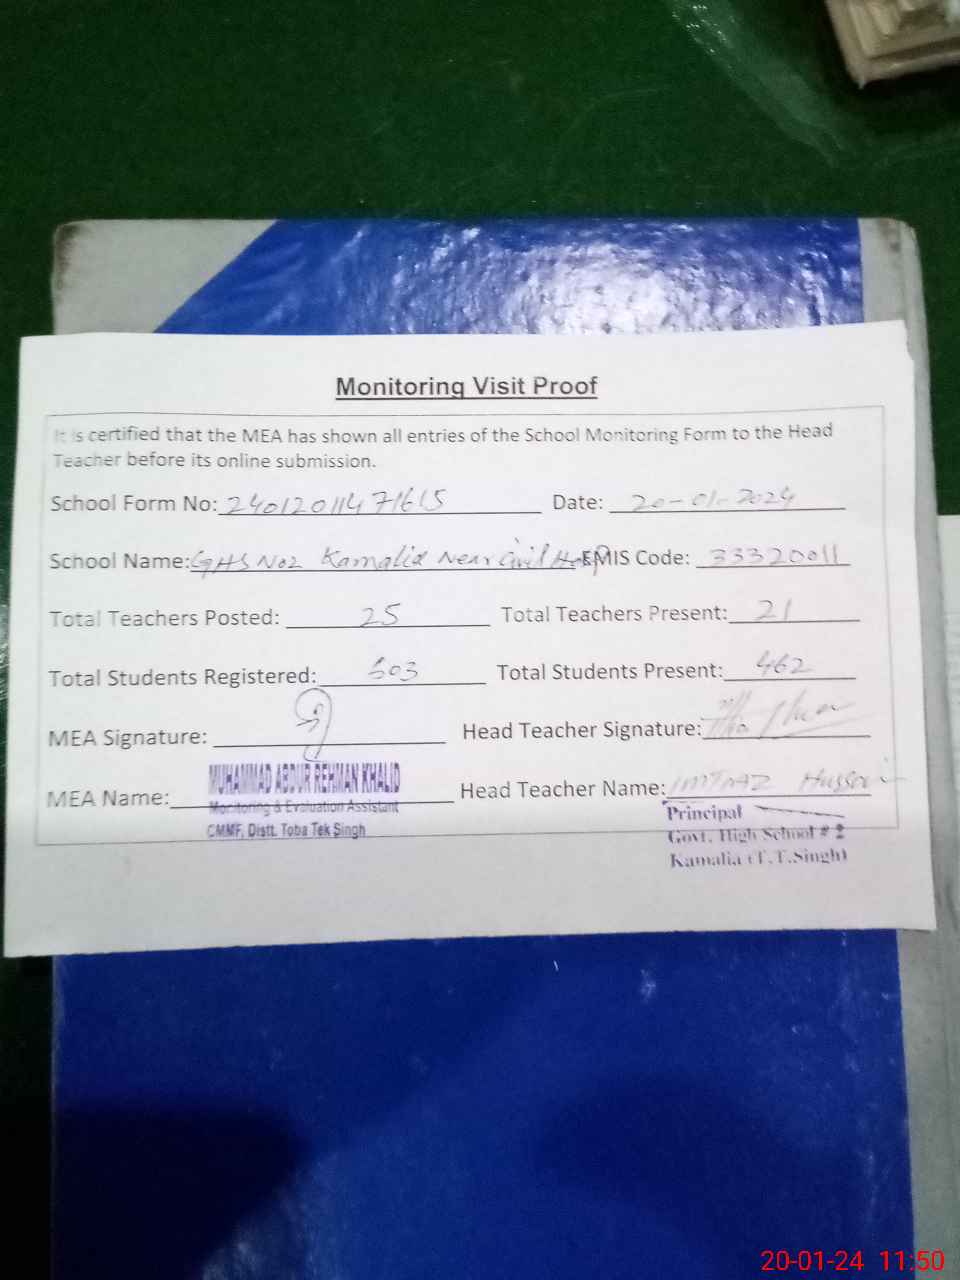 Monitoring Visit Proof
It is certified that the MEA has shown all entries of the School Monitoring Form to the Head
Teacher before its online submission.
School Form No: 24012011471615 Date: 20-01-2024
School Name: GHS No2 Kamalia Near Civil Hosp EMIS Code: 33320011
Total Teachers Posted: 25 Total Teachers Present: 21
Total Students Registered: 503 Total Students Present: 462
MEA Signature: Head Teacher Signature:
MEA Name: MUHAMMAD ABDUR REHMAN KHALID Head Teacher Name: Imtiaz Hussain
Monitoring & Evaluation Assistant
CMMF, Distt. Toba Tek Singh
Principal
Govt. High School # 2
Kamalia (T.T.Singh)
20-01-24 11:50